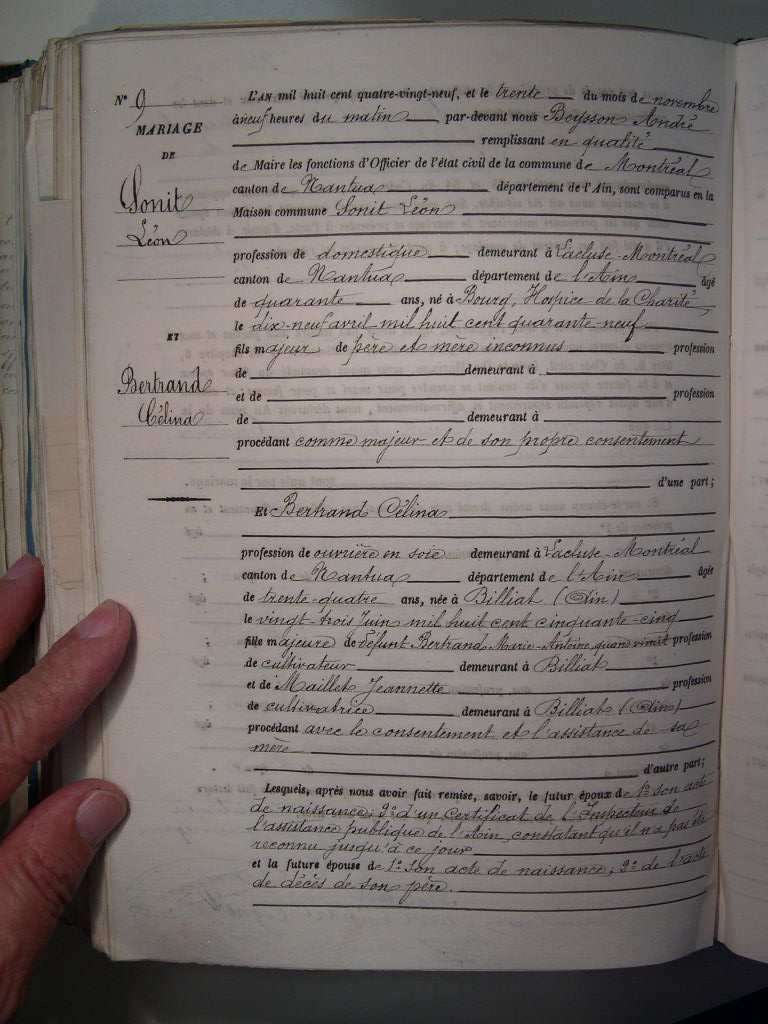 N° 9
MARIAGE
DE
Sonit
Léon
ET
Bertrand
Célina
L'AN mil huit cent quatre-vingt-neuf, et le trente du mois de novembre
à neuf heures du matin par-devant nous Beysson André
remplissant en qualité
de Maire les fonctions d'Officier de l'état civil de la commune de Montréal
canton de Nantua département de l'Ain, sont comparus en la
Maison commune Sonit Léon
profession de domestique demeurant à Lacluse-Montréal
canton de Nantua département de l'Ain âgé
de quarante ans, né à Bourg, Hospice de la Charité
le dix-neuf avril mil huit cent quarante-neuf
fils majeur de père et mère inconnus profession
de demeurant à
et de profession
de demeurant à
procédant comme majeur et de son propre consentement
d'une part;
Et Bertrand Célina
profession de ouvrière en soie demeurant à Lacluse-Montréal
canton de Nantua département de l'Ain âgée
de trente-quatre ans, née à Billiat (Ain)
le vingt trois Juin mil huit cent cinquante-cinq
fille majeure de défunt Bertrand Marie-Antoine, quand vivait profession
de cultivateur demeurant à Billiat
et de Maillet Jeannette profession
de cultivatrice demeurant à Billiat (Ain)
procédant avec le consentement et l'assistance de sa
mère
d'autre part;
Lesquels, après nous avoir fait remise, savoir, le futur époux de 1° son acte
de naissance; 2° d'un Certificat de l'Inspecteur de
l'assistance publique de l'Ain, constatant qu'il n'a pas été
reconnu jusqu'à ce jour
et la future épouse de 1° son acte de naissance; 2° de l'acte
de décès de son père.